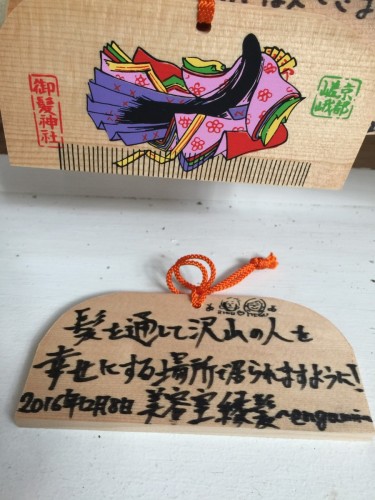 御髪神社
京都
嵯峨
髪を通して沢山の人を
幸せにする場所で居られますように!
2016年12月8日 美容室縁髪~engami~